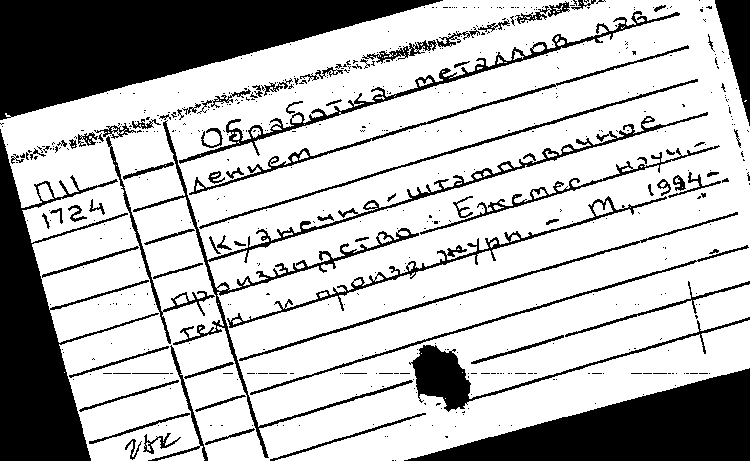 Обработка металлов дав-
лением
П11
1724
Кузнечно-штамповочное
производство : Ежемес. науч.-
техн. и произв. журн. - М., 1994-